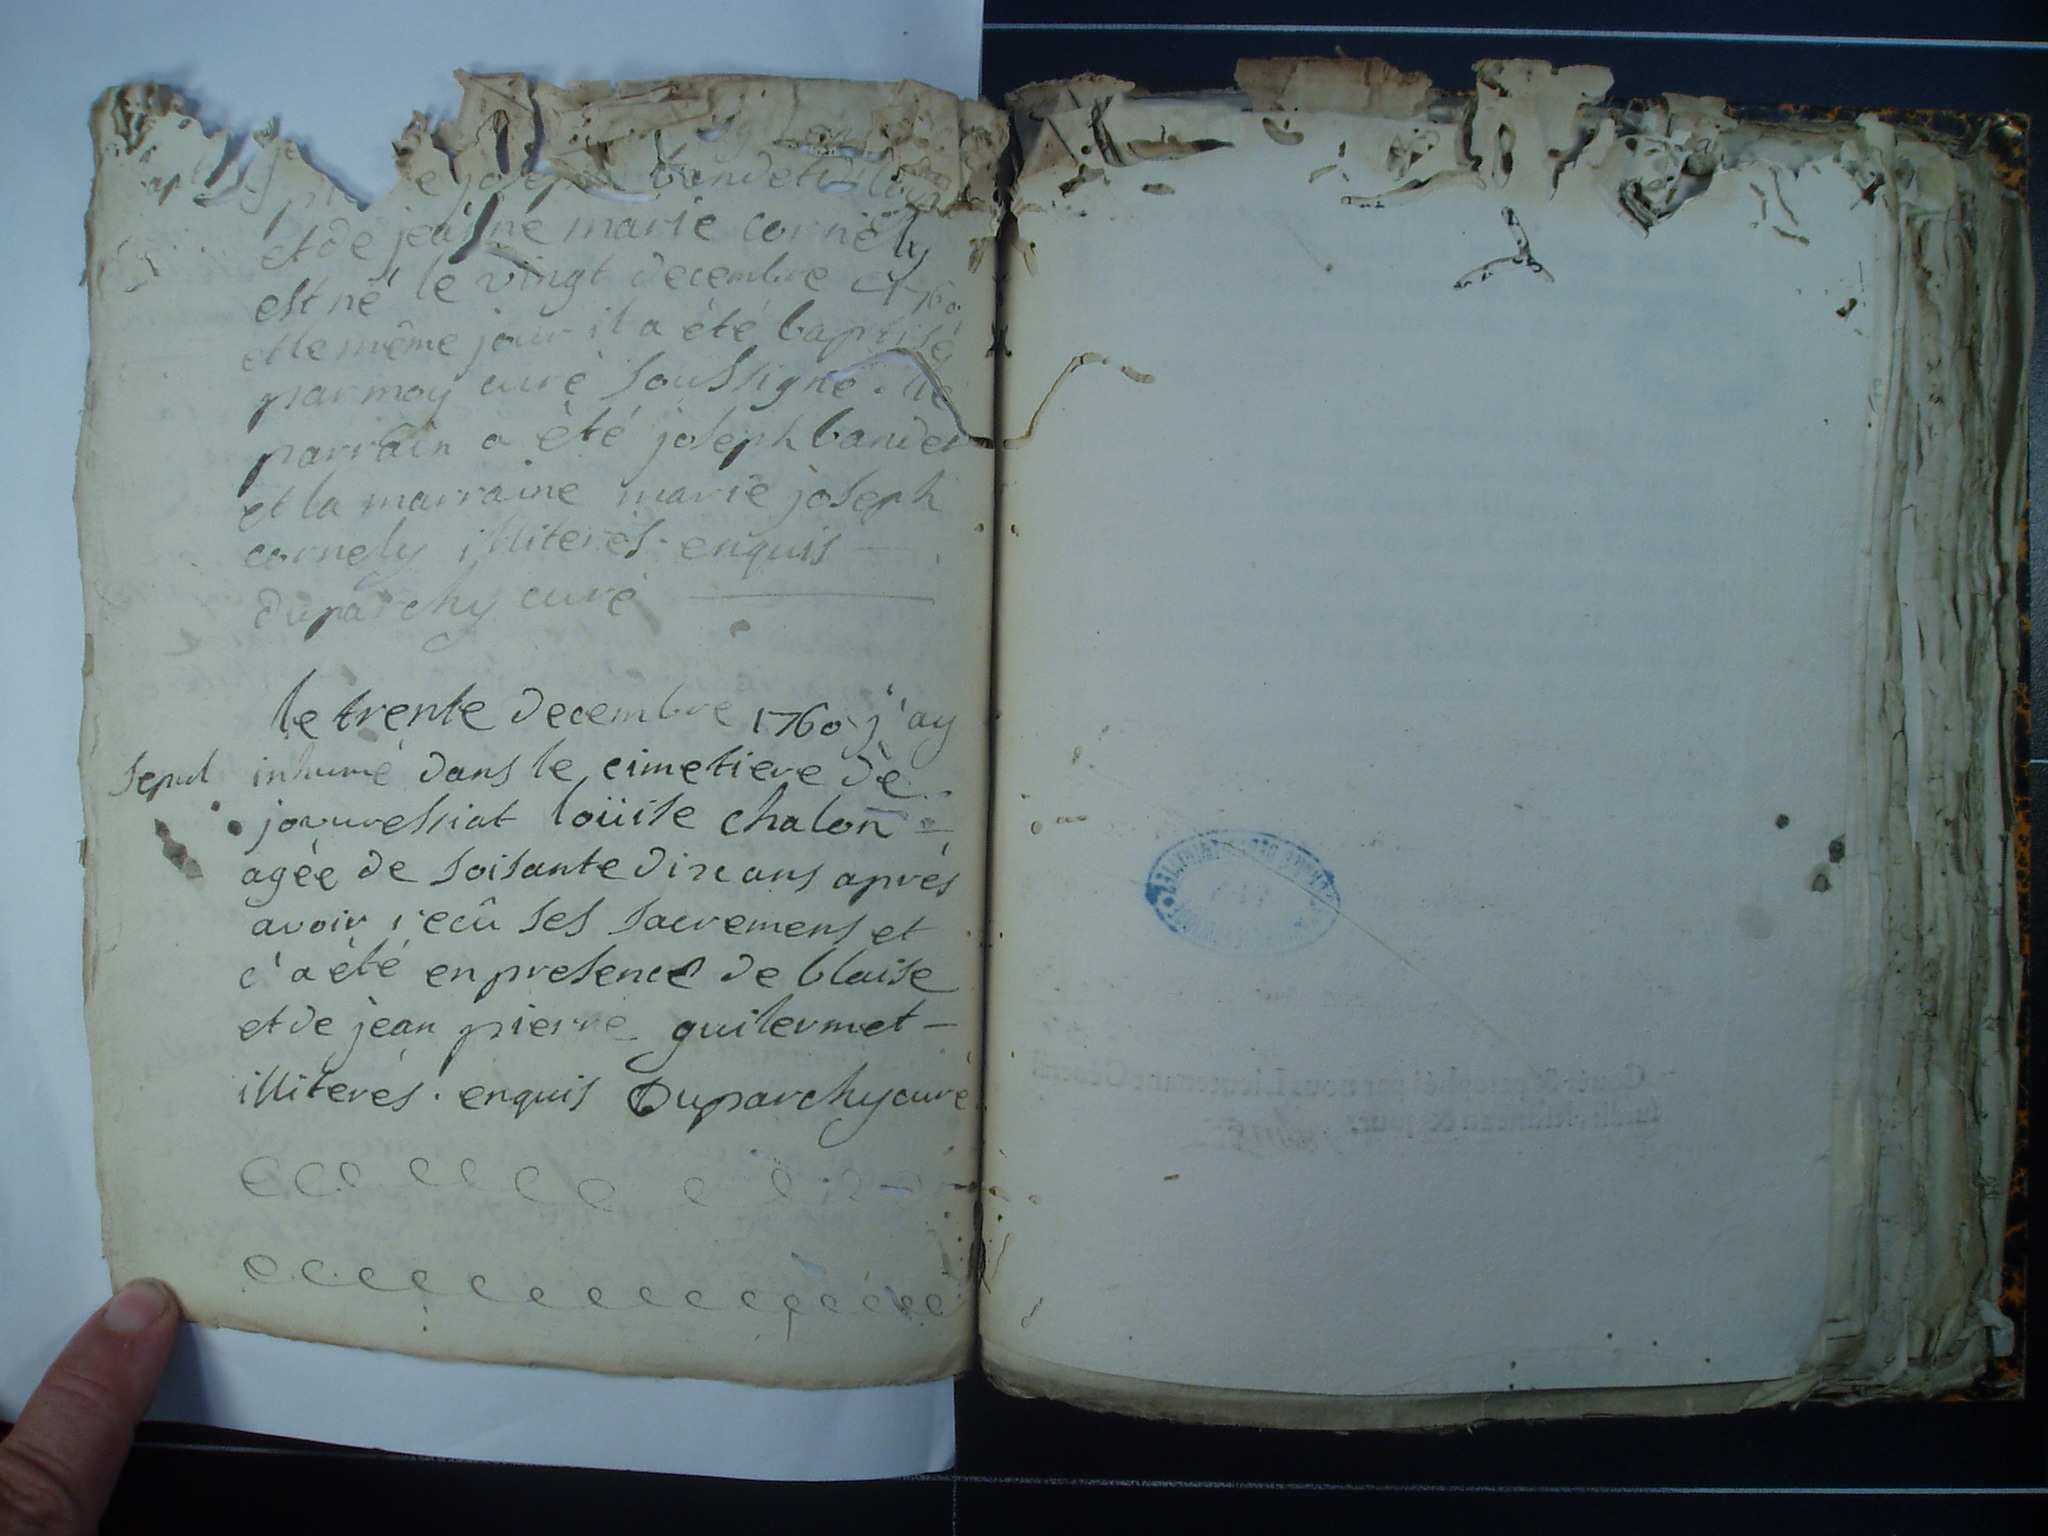 et de jeanne marie cornely
est né le vingt decembre 1760
et le même jour il a été baptisé
par moy curé soussigné. le
parrain a été joseph bandet
et la marraine marie joseph
cornely illiterés. enquis
Duparchy curé
le trente decembre 1760 j'ay
sepul
inhumé dans le cimetiere de
jouvressiat loüise chalon
agée de soisante dix ans aprés
avoir recû ses sacremens et
c'a été en presence de blaise
et de jean pierre guilermet
illiterés. enquis Duparchy curé